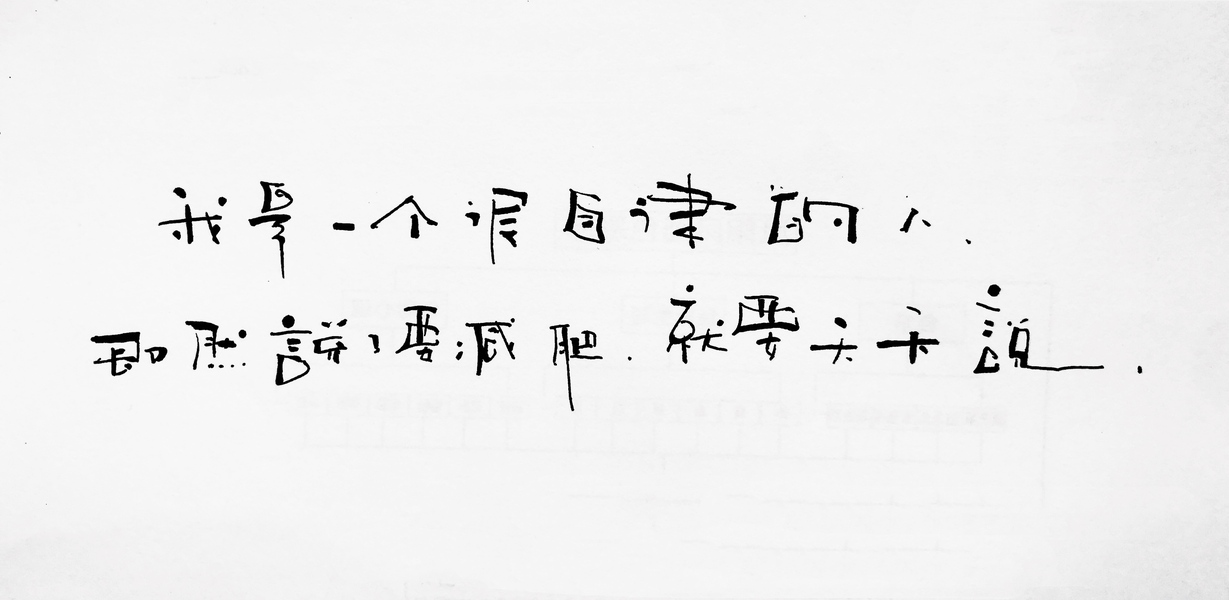 我是一个很自律的人.
既然說了要减肥.就要天天説.